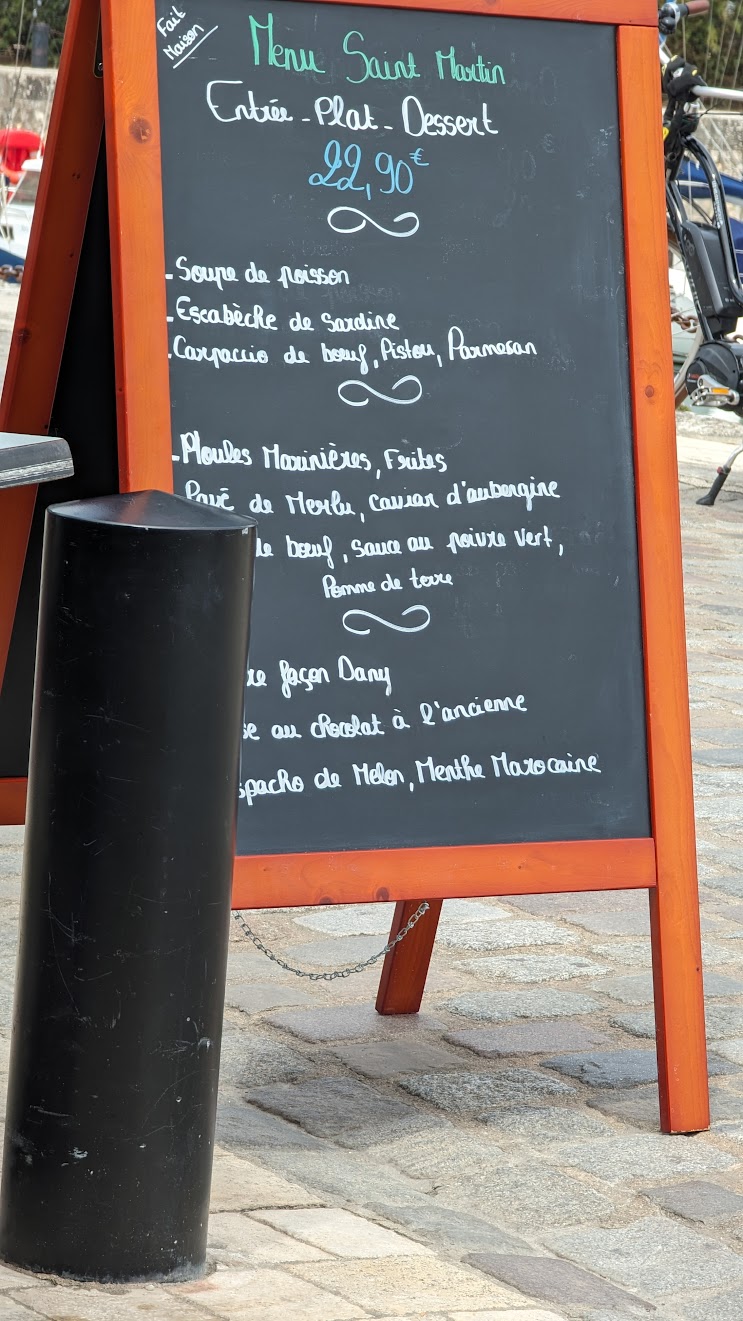 Fait
Maison
Menu Saint Martin
Entrée - Plat - Dessert
22,90€
- Soupe de poisson
- Escabèche de Sardine
- Carpaccio de bœuf, Pistou, Parmesan
- Moules Marinières, Frites
Pavé de Merlu, caviar d'aubergine
de bœuf, sauce au poivre vert,
Pomme de terre
façon Dany
au chocolat à l'ancienne
spacho de Melon, Menthe Marocaine